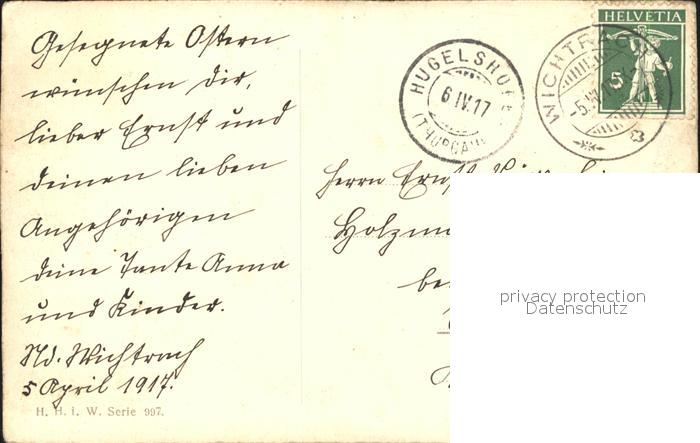 Gesegnete Ostern
wünschen Dir,
lieber Ernst und
deinen lieben
Angehörigen
deine Tante Anna
und Kinder.
Nd. Wichtrach
5 April 1917.
H. H. i. W. Serie 997.
HUGELSHOFEN
6 IV. 17
(THURGAU)
WICHTRACH
HELVETIA
5
Herrn Ernst
privacy protection
Datenschutz